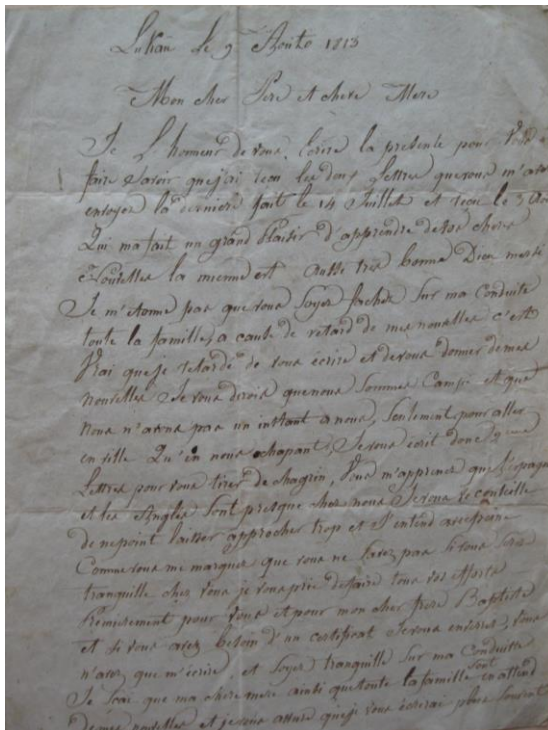 le 9 Aoust 1813
Mon cher Pere et chere Mere
Je L'honneur de vous Ecrire la presente pour Vous
faire Savoir que j'ai recu les deux Lettres que vous m'avez
envoyer la derniere fait le 14 Juillet et recu le 3
Qui ma fait un grand Plaisir d'apprendre de vos cheres
Nouvelles la mienne est aussi tres bonne Dieu merci
Je m'etonne pas que vous Soyez fachée Sur ma Conduite
toute la famille, a cause de retard de mes nouvelles c'est
Vrai que je retarde de vous ecrire et de vous donner de mes
nouvelles Je vous dirois que nous Sommes Campé et que
nous n'avons pas un instant a nous, Seulement pour aller
en ville Qu'en nous echapant, Je vous ecrit donc
Lettres pour vous tirer de chagrin, Vous m'apprenez que
et les Anglés Sont presque chez nous Je vous Le conseille
de ne point laisser approcher trop et S'entend
Comme vous me marquez que vous ne Serez pas Si vous Serez
tranquille chez Vous je vous prie de faire tous vos efforts
pour vous et pour mon cher frere Baptiste
et Si vous avez besoin d'un certificat Je vous enverrez, Vous
n'avez que m'écrire, et Soyez tranquille Sur ma Conduite
Je Scai que ma chere mere ainsi que toute la famille Sont en attend
de mes nouvelles et je vous assure que je vous écrirai plus Souvent